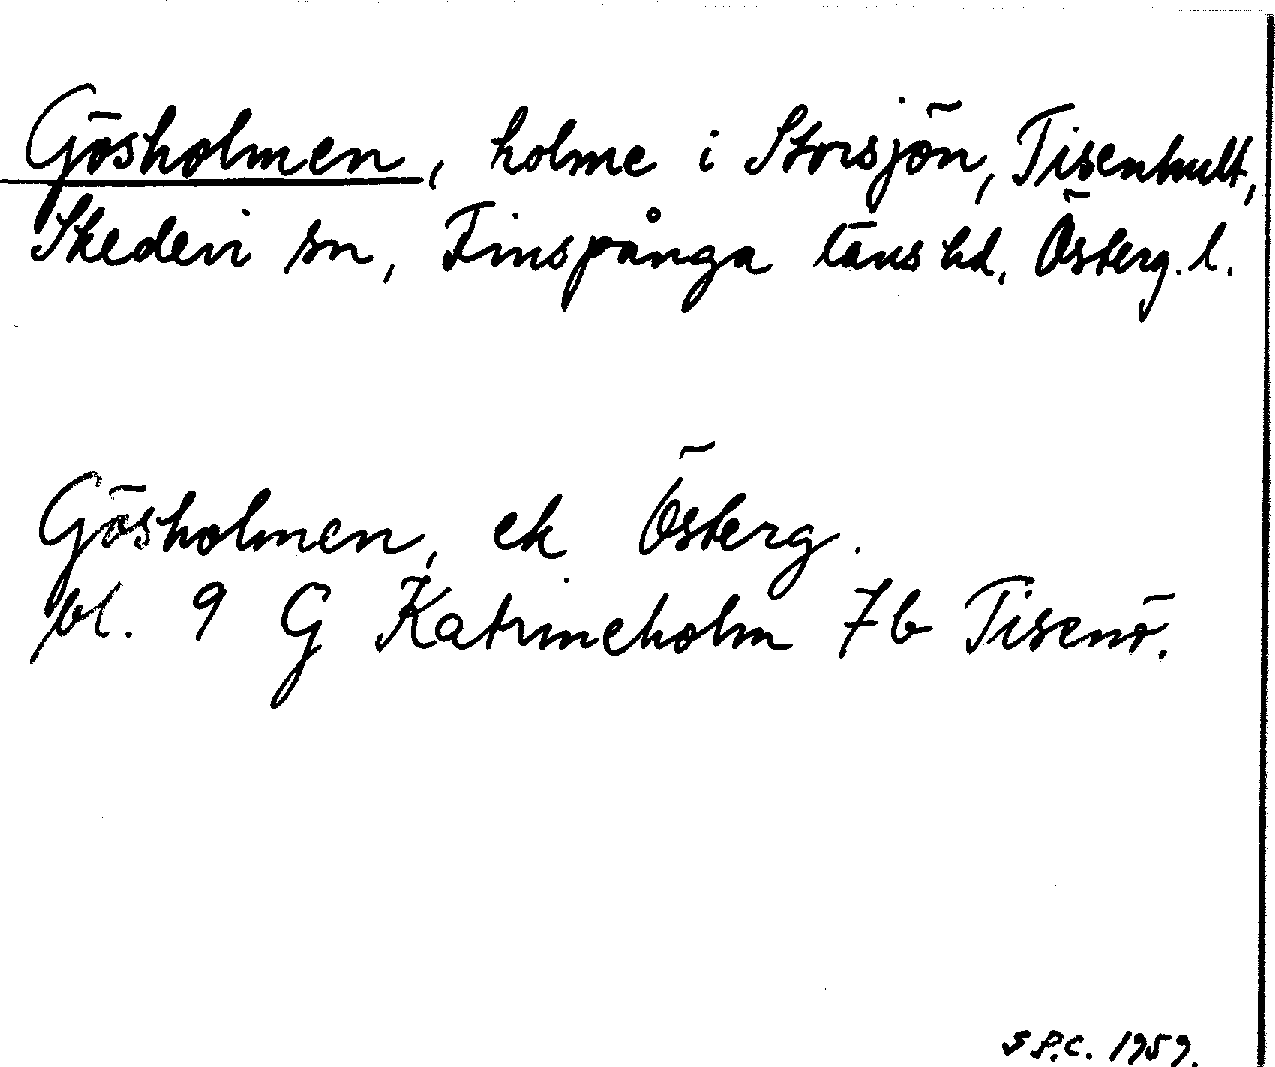 Gösholmen, holme i Storsjön, Tisenhult,
Skedevi sn, Finspånga läns hd. Österg. l.
Gösholmen, ek Österg.
bl. 9 G Katrineholm 7b Tisenö.
S P.C. 1959.